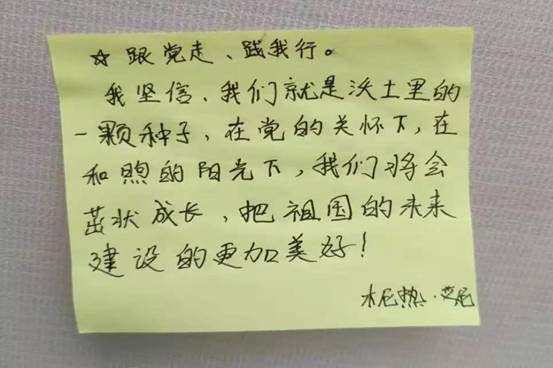 ☆ 跟党走、践我行。
我坚信、我们就是沃土里的
一颗种子、在党的关怀下,在
和煦的阳光下,我们将会
茁状成长,把祖国的未来
建设的更加美好!
木尼热·艾尼